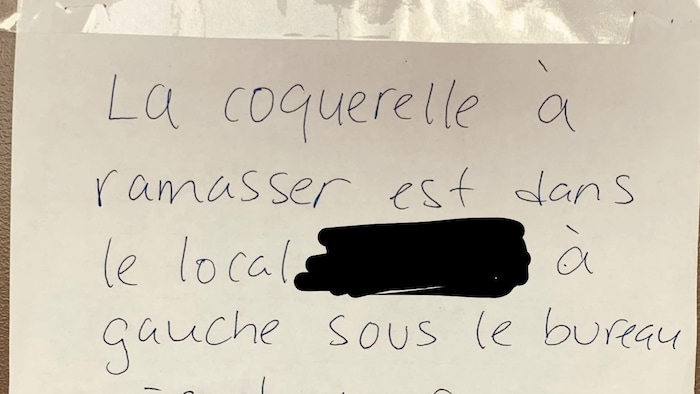 La coquerelle à
ramasser est dans
le local à
gauche sous le bureau